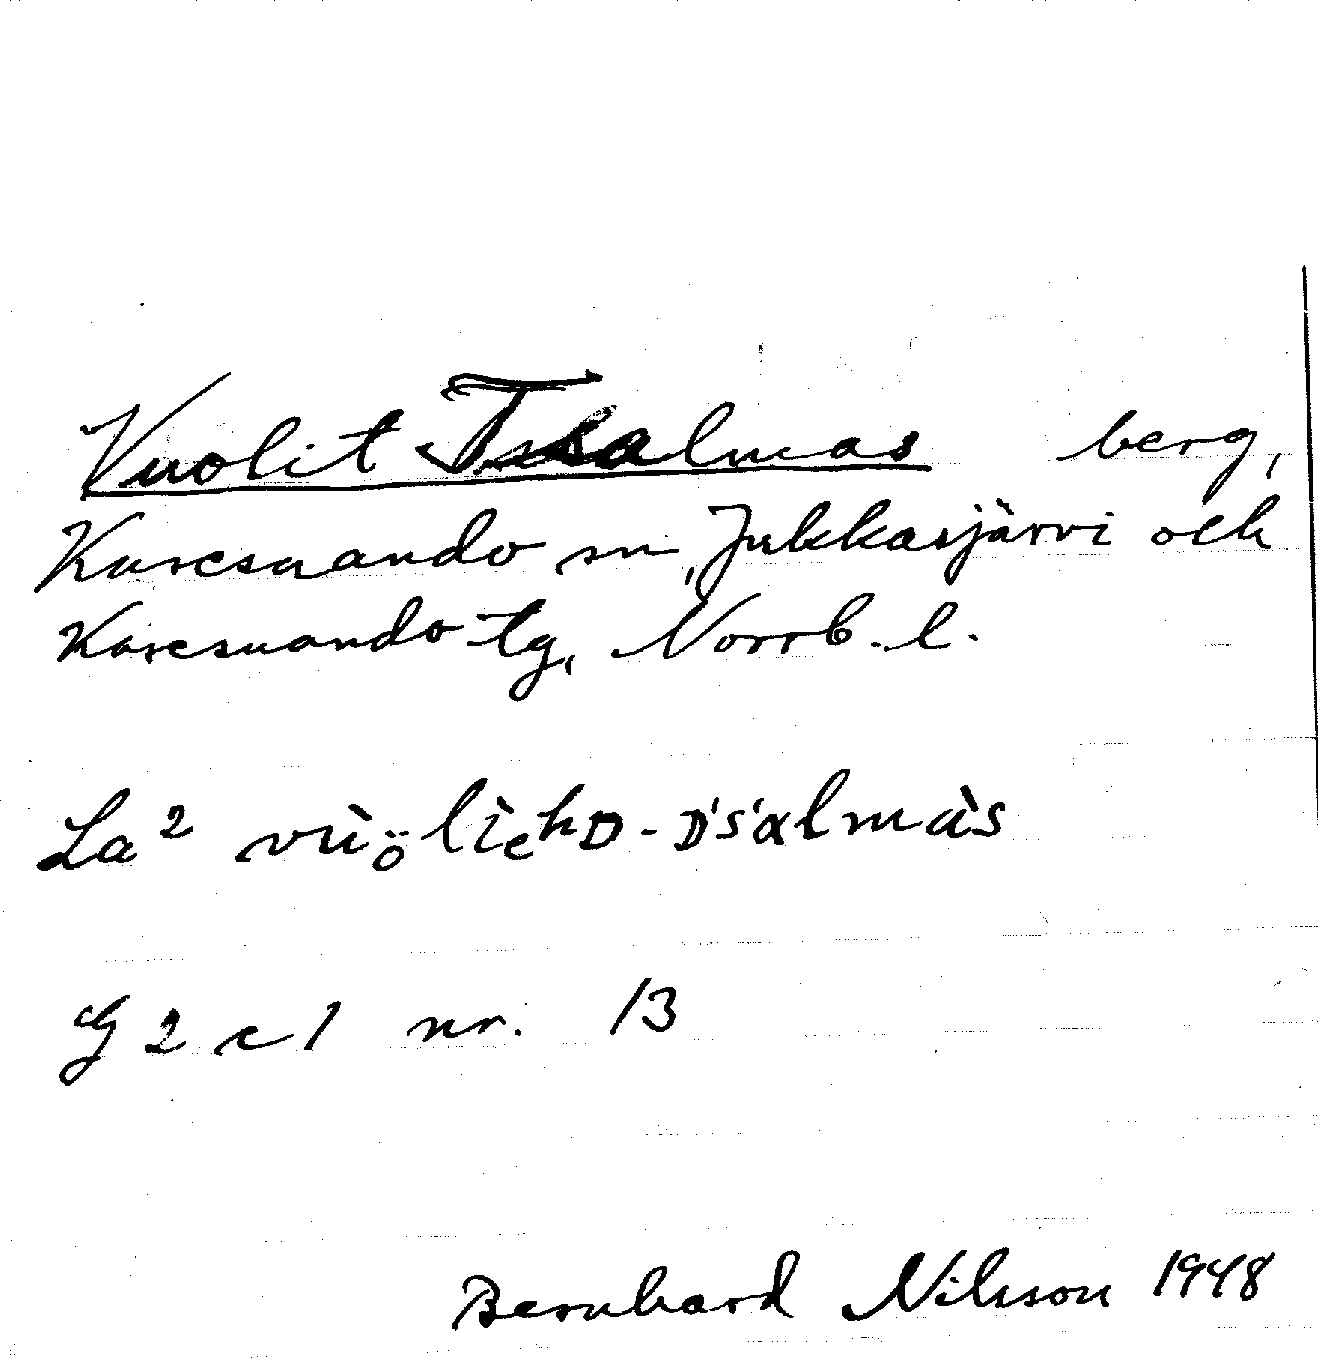 Vuolit Tsalmas berg,
Karesuando sn, Jukkasjärvi och
Karesuando tg, Norrb. l.
La² vùo̤lìehᴅ-ᴅ's'almàs
G 2 c 1 nr. 13
Bernhard Nilsson 1948